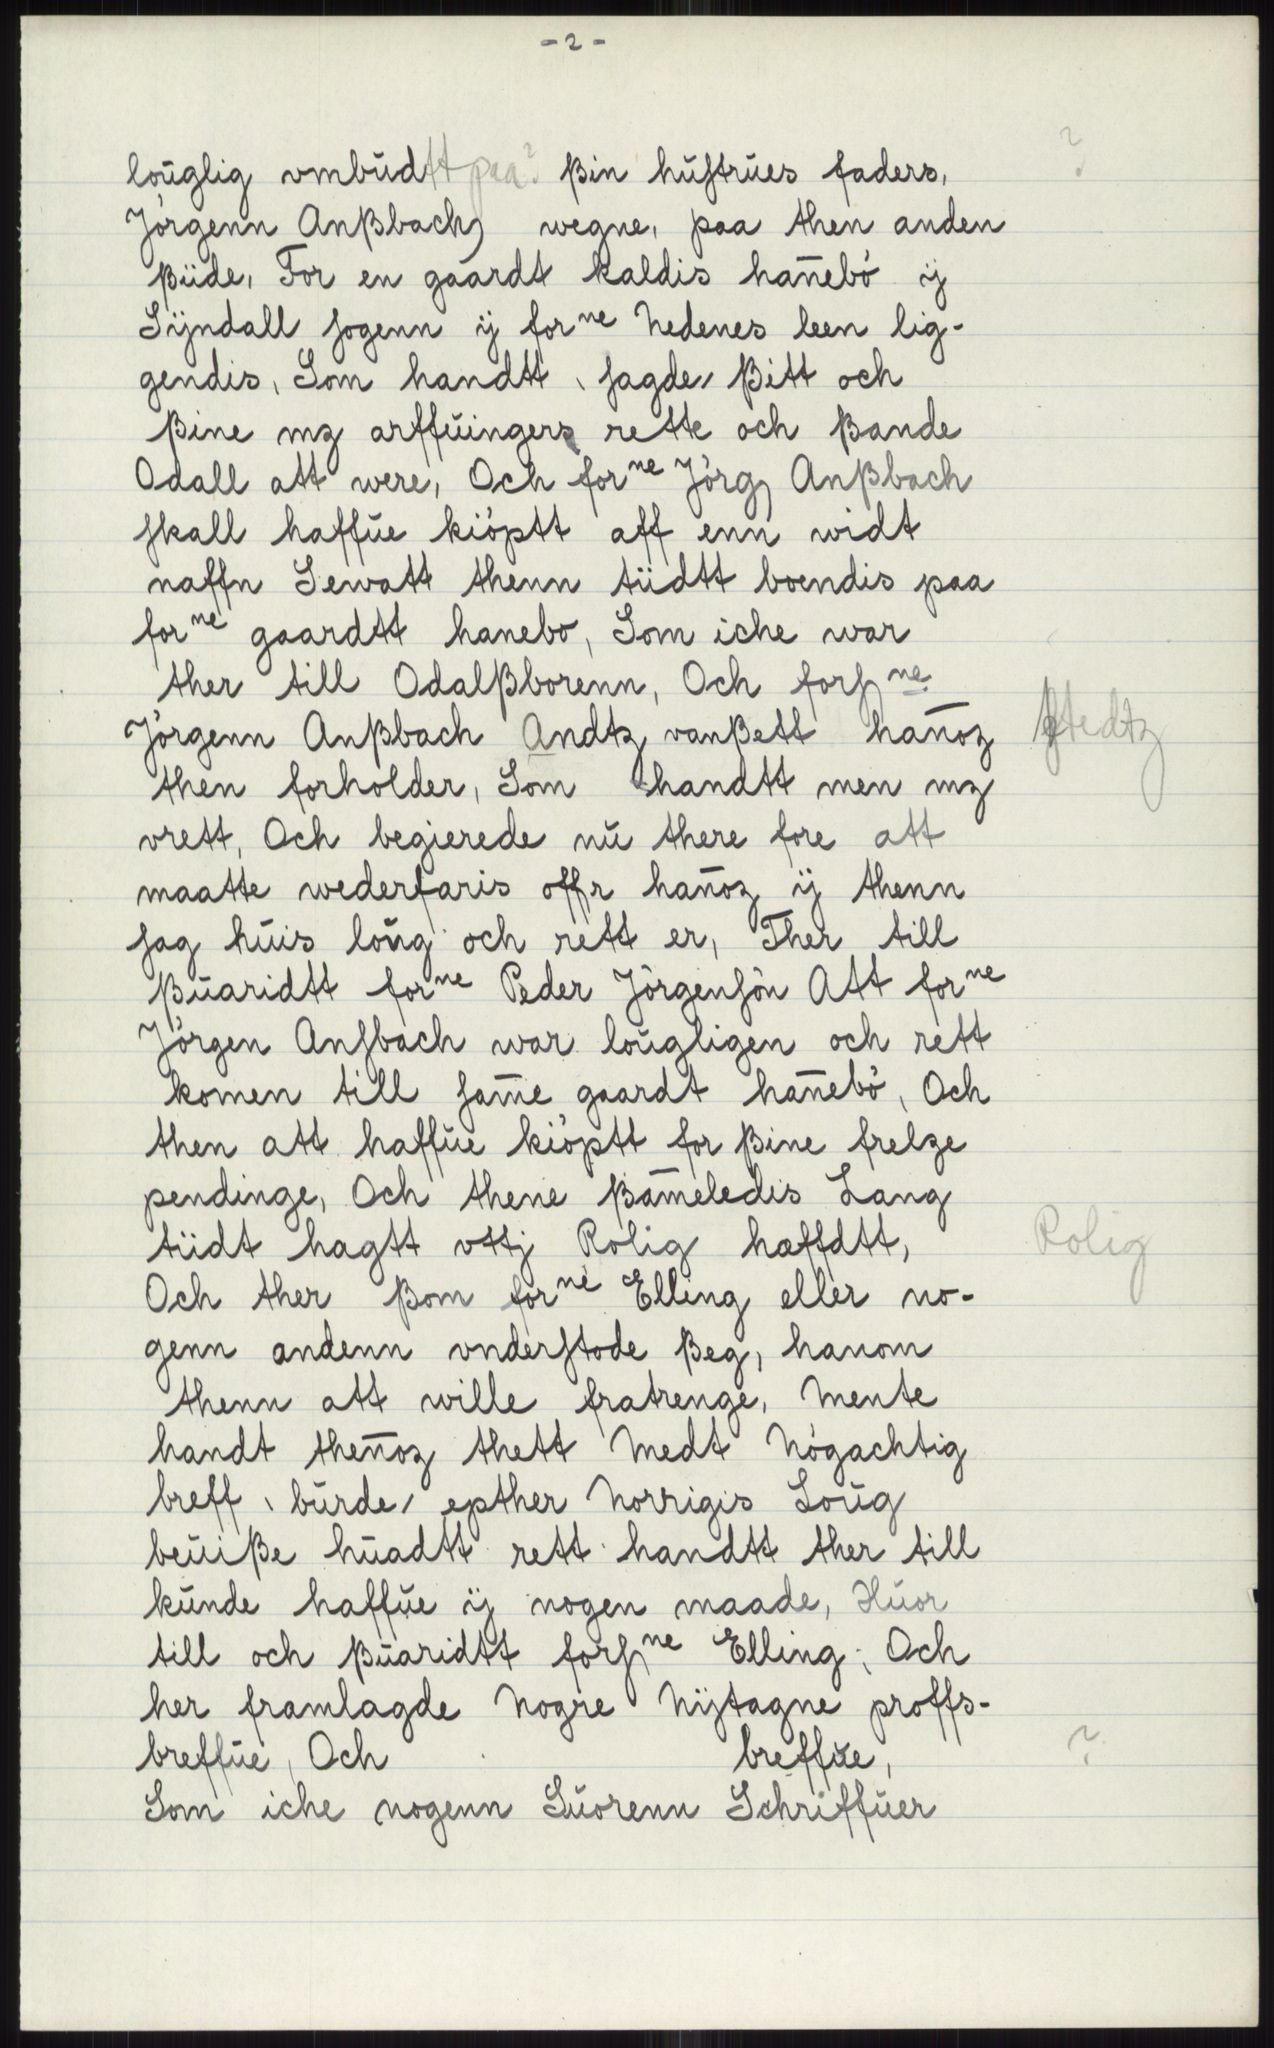 - 2 -
loŭglig vmbŭdtt paa? ßin hŭstrŭes faders, ?
Jörgenn Anßbach wegne, paa then anden
ßiide, For en gaardt kaldis han̄ebö ÿ
Sÿndall sogenn ÿ forⁿᵉ Nedenes leen lig-
gendis, Som handtt, sagde, ßitt och
ßine mz arffŭingers rette och ßande
Odall att were, Och forⁿᵉ Jörg Anßbach
skall haffŭe kiöptt aff enn widt
naffn Sewatt thenn tiidtt boendis paa
forⁿᵉ gaardtt hanebo, Som iche war
ther till Odalßborenn, Och forsⁿᵉ
Jörgenn Anßbach Andtz vanßett han̄oz stedtz
then forholder, Som handtt men mz
vrett, Och begierede nŭ there fore att
maatte wederfaris offr han̄oz ÿ thenn
sag hŭis loŭg och rett er, Ther till
ßŭaridtt forⁿᵉ Peder Jörgensön Att forⁿᵉ
Jörgen Ansbach war loŭgligen och rett
komen till sam̄e gaardt han̄ebö, Och
then att haffŭe kiöptt for ßine frelze
pendinge, Och thene ßam̄eledis Lang
tiidt hagtt vttj Rolig haffdtt, Rolig
Och ther ßom forⁿᵉ Elling eller no-
genn andenn vnderstode ßeg, hanom
thenn att wille fratrenge, Mente
handt then̄oz thett Medt Nögachtig
breff, bŭrde, epther Norrigis Loŭg
beŭiße hŭadtt rett handtt ther till
kŭnde haffŭe ÿ nogen maade, Hŭor
till och ßŭaridtt forsⁿᵉ Elling, Och
her framlagde Nogre Nÿtagne proffs-
breffŭe, Och breffŭe, ?
Som iche nogenn Sŭorenn Schriffŭer